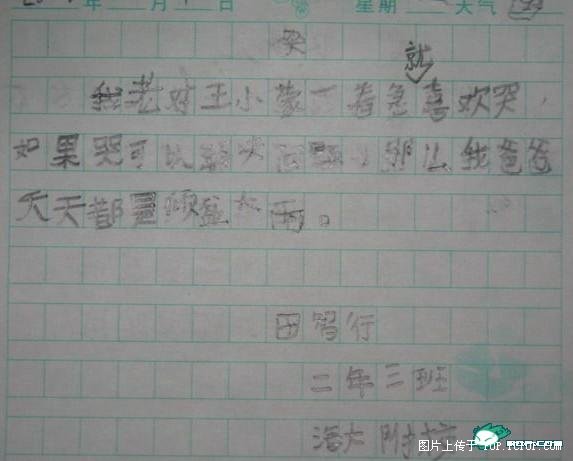 年 月 日 星期 天气
哭
就
我老对王小蒙一着急喜欢哭，
如果哭可以解决问题，那么我爸爸
天天都是倾盆大雨。
田智行
二年三班
海大附校
图片上传于 TOP.TCTOP.COM